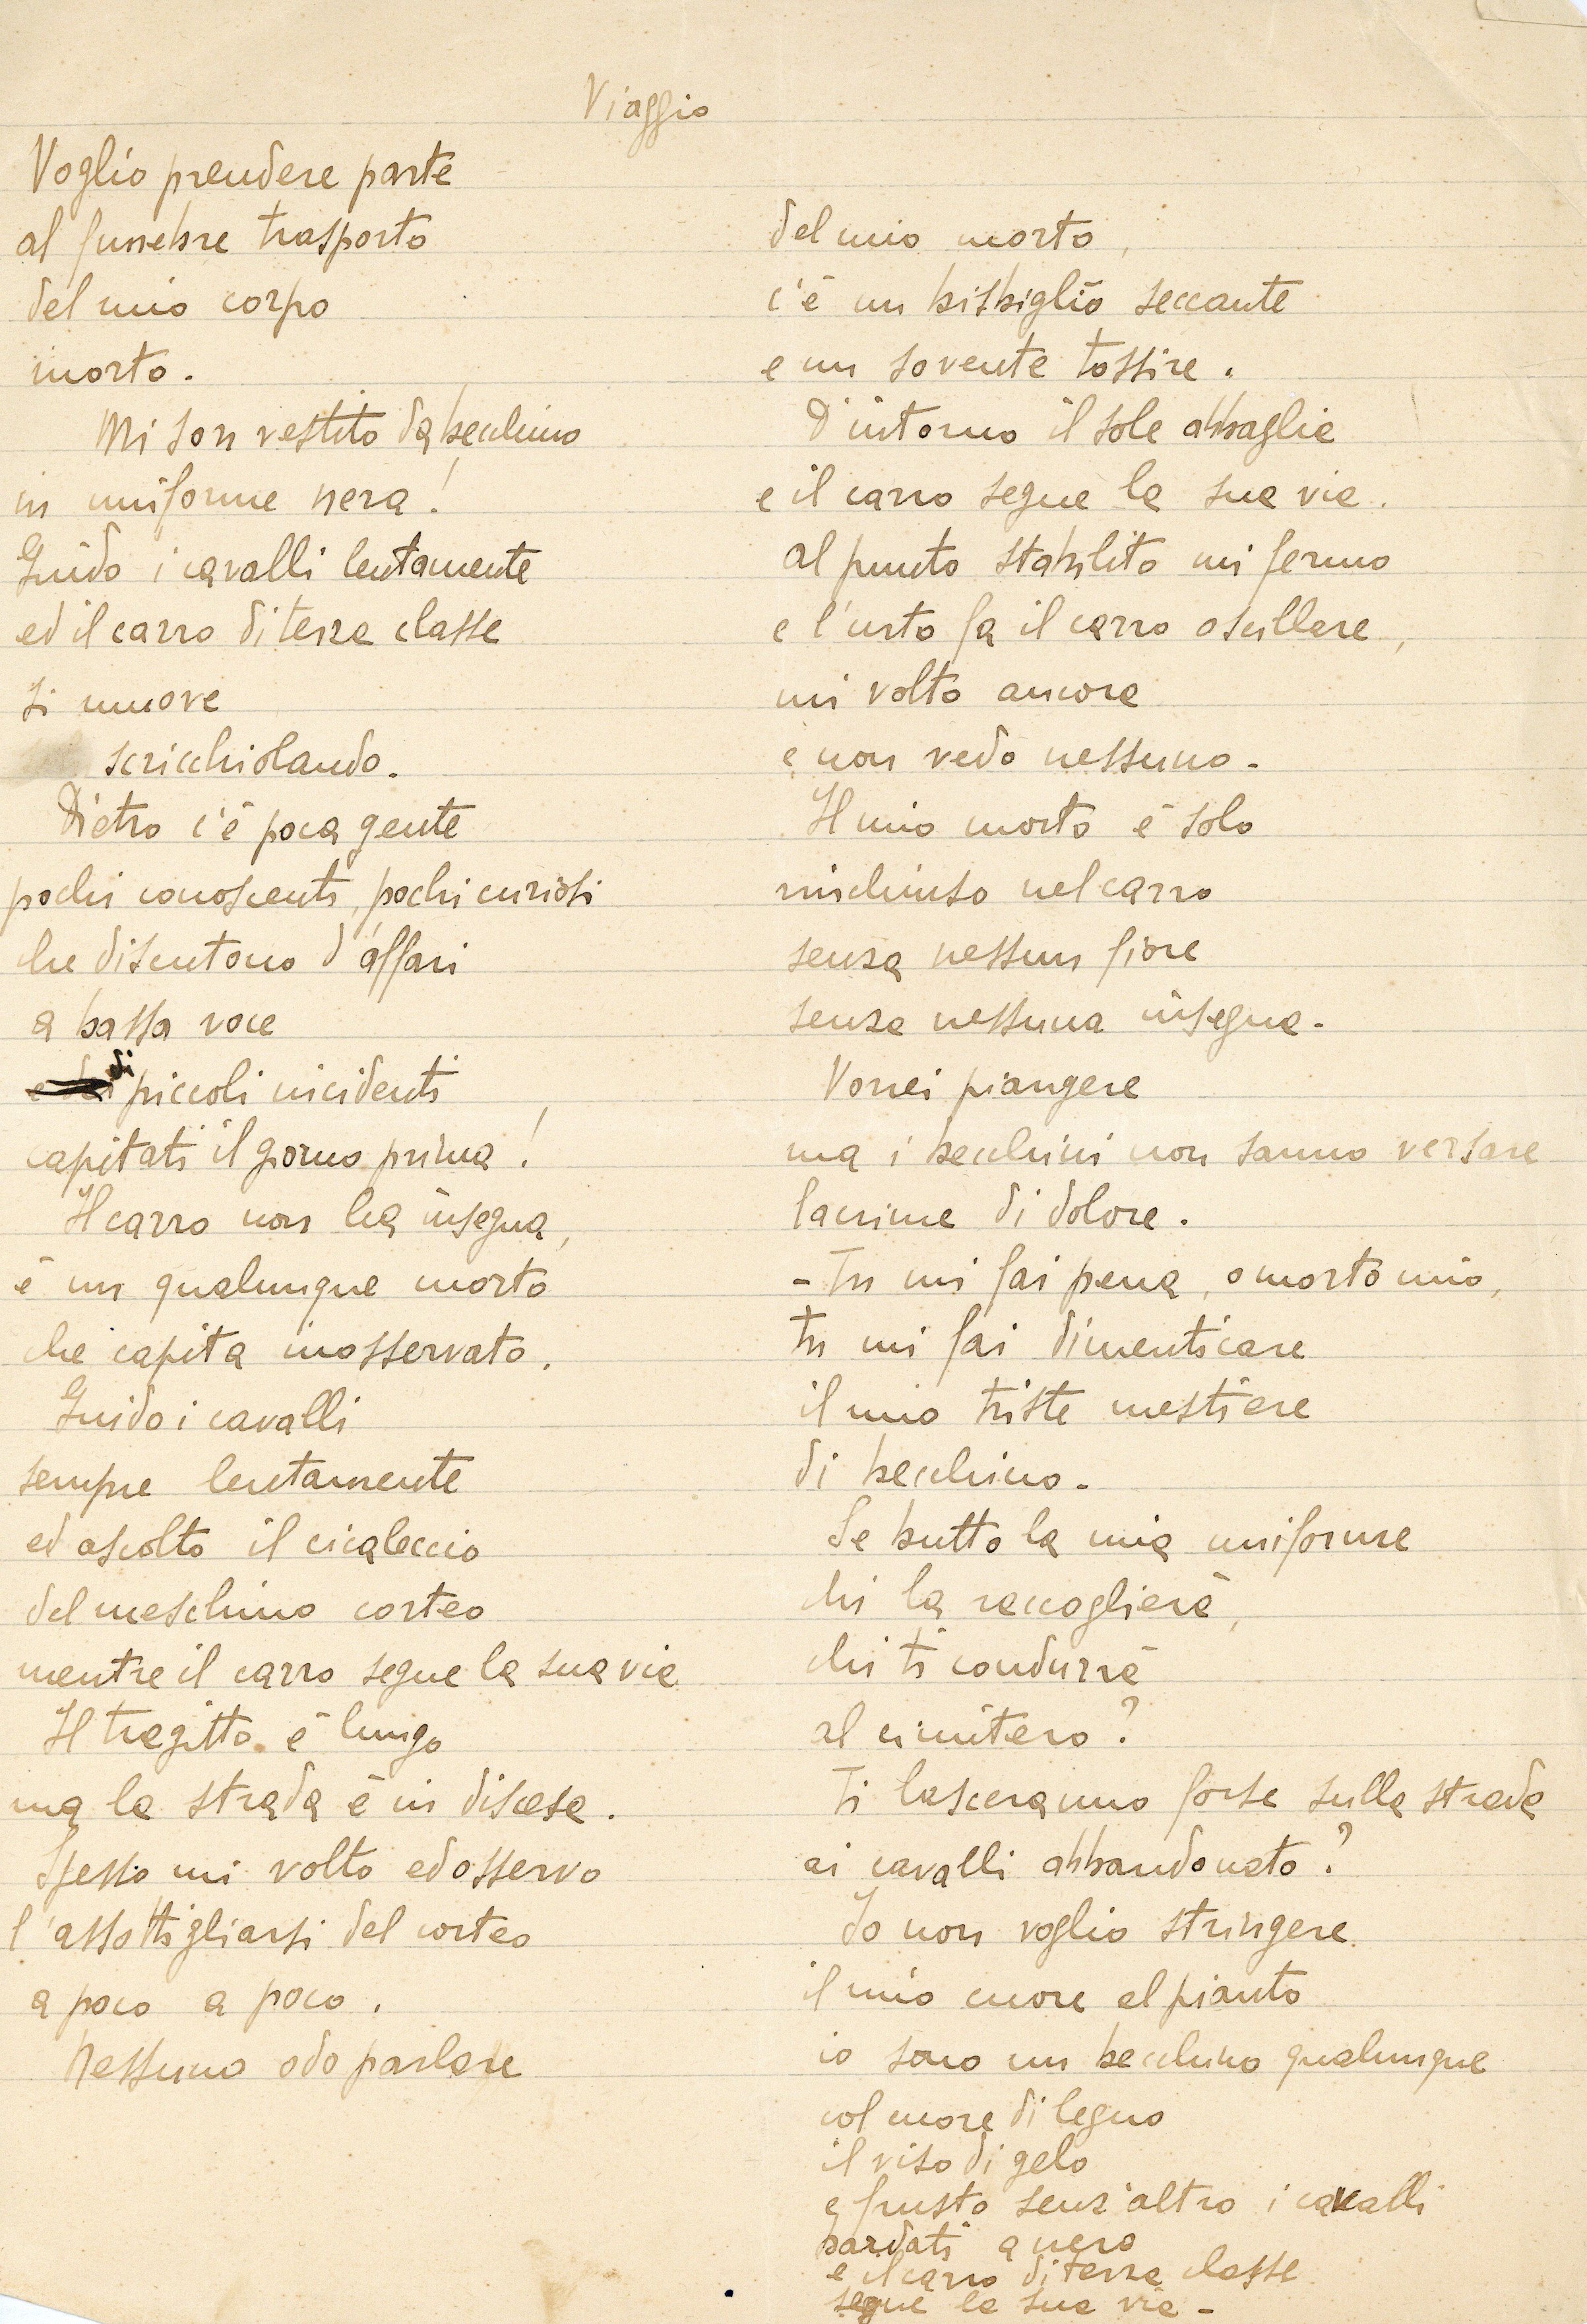 Viaggio
Voglio prendere parte
al funebre trasporto
del mio corpo
morto.
Mi son vestito da becchino
in uniforme nera!
Guido i cavalli lentamente
ed il carro di terza classe
si muove
scricchiolando.
Dietro c'è poca gente
pochi conoscenti, pochi curiosi
che discutono d'affari
a bassa voce
di piccoli incidenti
capitati il giorno prima!
Il carro non ha insegna,
è un qualunque morto
che capita inosservato.
Guido i cavalli
sempre lentamente
ed ascolto il cicaleccio
del meschino corteo
mentre il carro segue la sua via
Il tragitto è lungo
ma la strada è in discesa.
Spesso mi volto ed osservo
l'assottigliarsi del corteo
a poco a poco.
Nessuno odo parlare
del mio morto,
c'è un bisbiglio seccante
e un sovente tossire.
D'intorno il sole abbaglia
e il carro segue la sua via.
Al punto stabilito mi fermo
e l'urto fa il carro oscillare,
mi volto ancora
e non vedo nessuno.
Il mio morto è solo
rinchiuso nel carro
senza nessun fiore
senza nessuna insegna.
Vorrei piangere
ma i becchini non sanno versare
lacrime di dolore.
- Tu mi fai pena, o morto mio,
tu mi fai dimenticare
il mio triste mestiere
di becchino.
Se butto la mia uniforme
chi la raccoglierà,
chi ti condurrà
al cimitero?
Ti lasceranno forse sulla strada
ai cavalli abbandonato?
Io non voglio stringere
il mio cuore al pianto
io sono un becchino qualunque
col cuore di legno
il viso di gelo
e frusto senz'altro i cavalli
bardati a nero
e il carro di terza classe
segue la sua via -